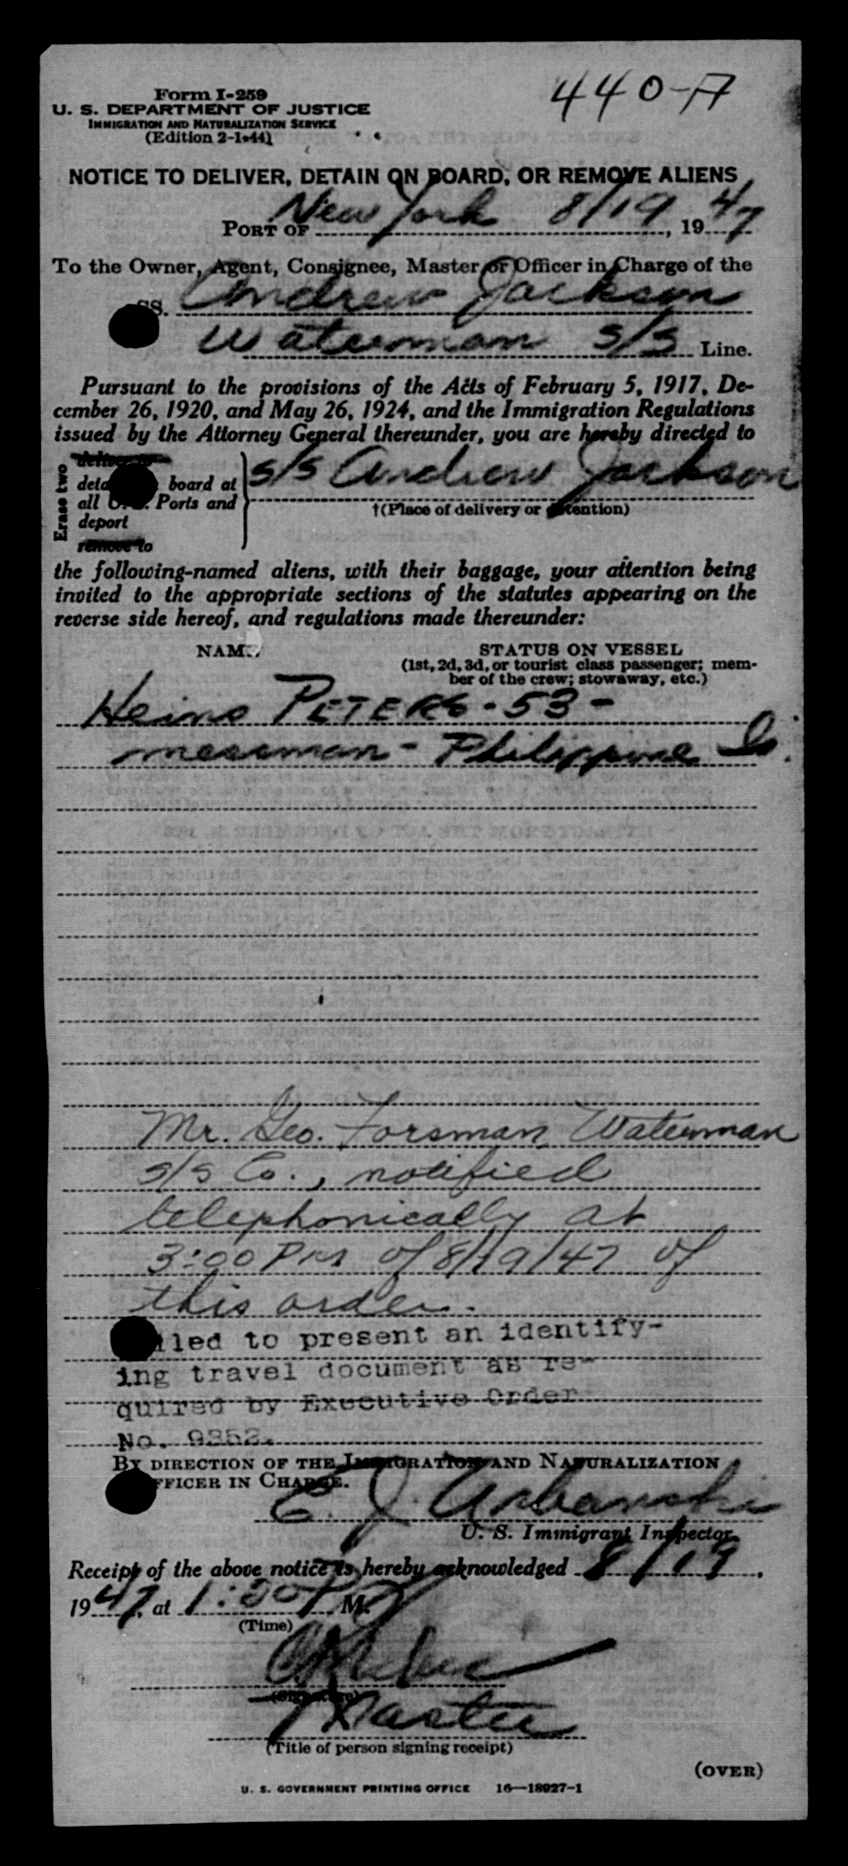 440-A
Form I-259
U. S. DEPARTMENT OF JUSTICE
IMMIGRATION AND NATURALIZATION SERVICE
(Edition 2-1-44)
NOTICE TO DELIVER, DETAIN ON BOARD, OR REMOVE ALIENS
PORT OF New York 8/19, 1947
To the Owner, Agent, Consignee, Master or Officer in Charge of the
SS. Andrew Jackson
Waterman S/S Line.
Pursuant to the provisions of the Acts of February 5, 1917, De-
cember 26, 1920, and May 26, 1924, and the Immigration Regulations
issued by the Attorney General thereunder, you are hereby directed to
Erase two
deliver to
deta board at
all U. S. Ports and
deport
remove to
S/S Andrew Jackson
†(Place of delivery or detention)
the following-named aliens, with their baggage, your attention being
invited to the appropriate sections of the statutes appearing on the
reverse side hereof, and regulations made thereunder:
NAME STATUS ON VESSEL
(1st, 2d, 3d, or tourist class passenger; mem-
ber of the crew; stowaway, etc.)
Heins PETERS - 53 -
messman - Philippine Is.
Mr. Geo. Forsman, Waterman
S/S Co., notified
telephonically at
3:00 PM of 8/19/47 of
this order.
iled to present an identify-
ing travel document as re-
quired by Executive Order
No. 9352.
BY DIRECTION OF THE IMMIGRATION AND NATURALIZATION
OFFICER IN CHARGE.
E. J. Arbanski
U. S. Immigrant Inspector.
Receipt of the above notice is hereby acknowledged 8/19,
1947, at 1:30 P M.
(Time)
(Signature)
Master
(Title of person signing receipt)
(OVER)
U. S. GOVERNMENT PRINTING OFFICE 16—18927-1